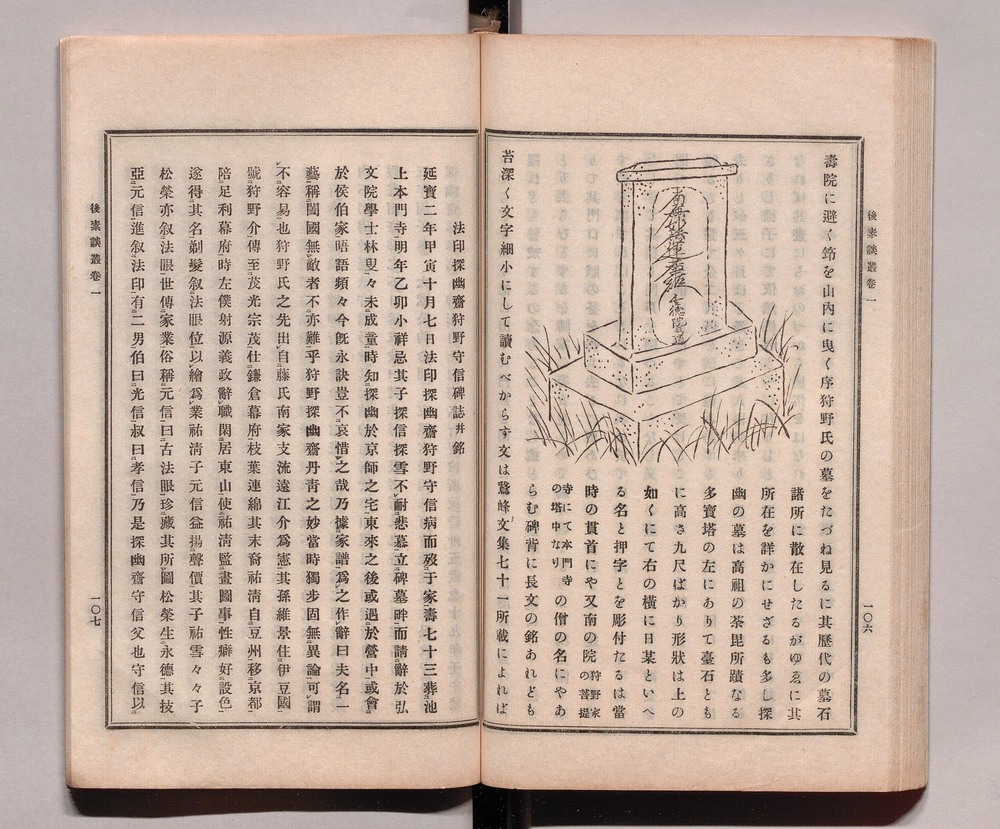 後素談叢卷一
一〇六
壽院に避く錫を山内に曳く序狩野氏の墓をたづね見るに其歷代の墓石
諸所に散在したるがゆゑに其
所在を詳かにせざるも多し探
幽の墓は高祖の荼毘所蹟なる
多寶塔の左にありて臺石とも
に高さ九尺ばかり形狀は上の
如くにて右の橫に日某といへ
る名と押字とを彫付たるは當
時の貫首にや又南の院狩野家の菩提
寺にて本門寺の塔中なりの僧の名にやあ
らむ碑背に長文の銘あれども
苔深く文字細小にして讀むべからす文は鵞峰文集七十一所載によれば
南無妙法蓮華經
後素談叢卷一
一〇七
法印探幽齋狩野守信碑誌幷銘
延寶二年甲寅十月七日法印探幽齋狩野守信病而歿于家壽七十三葬池
上本門寺明年乙卯小祥忌其子探信探雪不耐悲慕立碑墓畔而請辭於弘
文院學士林叟々未成童時知探幽於京師之宅東來之後或遇於營中或會
於侯伯家晤語頻々今旣永訣豈不哀惜之哉乃據家譜爲之作辭曰夫名一
藝稱闔國無敵者不亦難乎狩野探幽齋丹青之妙當時獨步固無異論可謂
不容易也狩野氏之先出自藤氏南家支流遠江介爲憲其孫維景住伊豆國
號狩野介傳至茂光宗茂仕鎌倉幕府枝葉連綿其末裔祐淸自豆州移京都
陪足利幕府時左僕射源義政辭職閑居東山使祐淸監畫圖事性癖好設色
遂得其名剃髮叙法眼位以繪爲業祐淸子元信益揚聲價其子祐雪々々子
松榮亦叙法眼世傳家業俗稱元信曰古法眼珍藏其所圖松榮生永德其技
亞元信進叙法印有二男伯曰光信叔曰孝信乃是探幽齋守信父也守信以